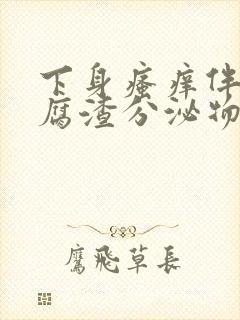 下身瘙痒伴
腐渣分泌物
鹰飞草长